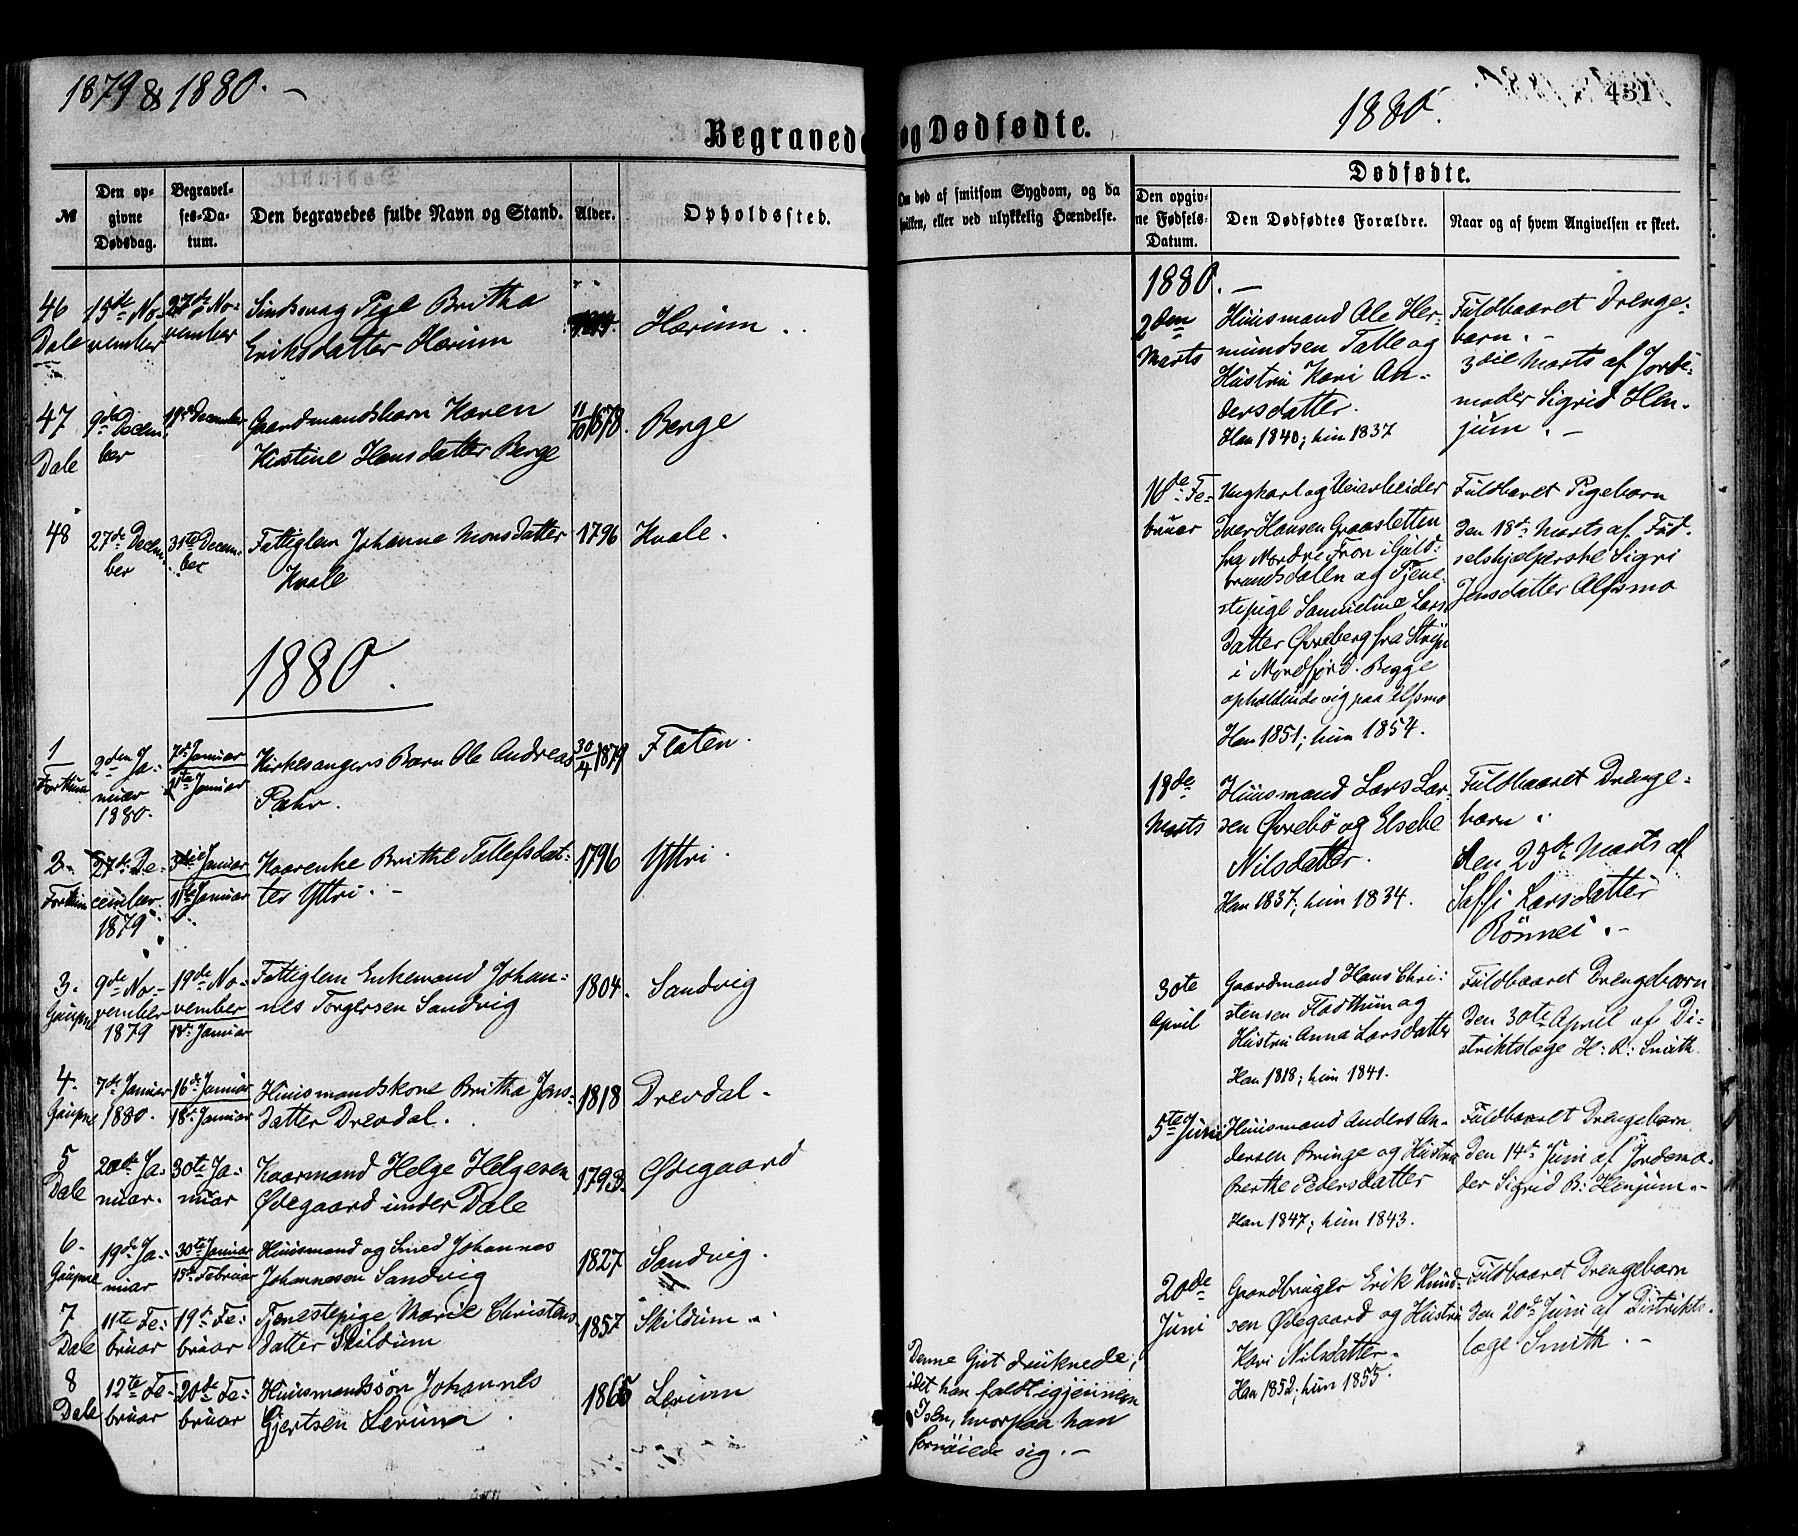 1879 & 1880. —
1880.
431
Begravede og Dødfødte.
Dødfødte.
№
Den op-
givne
Dødsdag.
Begravel-
ses-Da-
tum.
Den begravedes fulde Navn og Stand.
Alder.
Opholdssted.
Om død af smitsom Sygdom, og da
hvilken, eller ved ulykkelig Hændelse.
Den opgiv-
ne Fødsels-
Datum.
Den Dødfødtes Forældre.
Naar og af hvem Angivelsen er skeet.
46
Dale
15de No-
vember
27de No-
vember
Sindssvag Pige Britha
Eriksdatter Hærum
Hærum.
47
Dale
9de Decem-
ber
19de December
Gaardmandsbarn Karen
Kistine Hansdatter Berge
11/10 1878.
Berge
48
27de Decem-
ber
31te Decem-
ber
Fattiglem Johanna Monsdatter
Kvale
1796
Kvale.
1880.
1
Forthun
2den Ja-
nuar
1880.
7de Januar
11te Januar
Kirkesangers Barn Ole Andreas
Pæhr.
30/4 1879
Flaten.
2.
Forthun
27de De-
cember
1879
3die Januar
11te Januar
Kaarenke Brithe Tollefsdat-
ter Yttri. —
1796
Yttri.
3.
Gaupne
9de No-
vember
1879
19de No-
vember
18de Januar
Fattiglem Enkemand Johan-
nes Torgersen Sandvig
1804.
Sandvig
4.
Gaupne
7de Januar
1880.
16de Januar
18de Januar
Huusmandskone Britha Jens-
datter Drevdal.
1818
Drevdal.
5
Dale
20de Ja-
nuar.
30te Ja-
nuar
Kaarmand Helge Helgesen
Ødegaard under Dale
1793.
Ødegaard
6.
Gaupne
19de Ja-
nuar
30te Januar
15de Februar
Huusmand og Smed Johannes
Johannesen Sandvig
1827
Sandvig.
7
Dale
11te Fe-
bruar
19de Fe-
bruar
Tjenestepige Marie Christens-
datter Skildum
1857
Skildum.
8
Dale
12te Fe-
bruar
20de Fe-
bruar
Huusmandssøn Johannes
Gjertsen Lerum
1865
Lerum
Denne Gut druknede,
idet han faldt igjennem
Isen, hvorpaa han
fornøiede sig. —
1880. —
2den
Marts
Huusmand Ole Her-
mundsen Talle og
Hustru Kari An-
dersdatter.
Han 1840; hun 1837
Fuldbaaret Drenge-
barn. —
3die Marts af Jorde-
moder Sigrid Hen-
jum. —
10de Fe-
bruar
Ungkarl og Veiarbeider
Iver Hansen Graasletten
fra Nordre Fron i Guld-
brandsdalen og Tjene-
stepige Samueline Lars-
datter Øvreberg fra Stryn
i Nordfjord. Begge
opholdende sig paa Alfsmo
Han 1851; hun 1854.
Fuldbaaret Pigebarn
den 18de Marts af Fød-
selshjelperske Sigri
Jensdatter Alfsmo
18de
Marts
Huusmand Lars Lar-
sen Øvrebø og Elsebe
Nilsdatter.
Han 1837; hun 1834.
Fuldbaaret Drenge-
barn.
den 23de Marts af
Siffi Larsdatter
Rønnei. —
30te
April
Gaardmand Hans Chri-
stensen Flodhum og
Hustru Anna Larsdatter
Han 1818; hun 1841.
Fuldbaaret Drengebarn
den 30te April af Di-
striktslæge H. R. Smith.
5te Juni
Huusmand Anders An-
dersen Bringe og Hustru
Berthe Pedersdatter
Han 1847; hun 1843.
Fuldbaaret Drengebarn
den 14de Juni af Jordemo-
der Sigrid B. Henjum. —
20de
Juni
Gaardbruger Erik Knud-
sen Ødegaard og Hustru
Kari Nilsdatter.
Han 1852; hun 1855.
Fuldbaaret Drengebarn
den 20de Juni af Distrikts-
læge Smith. —